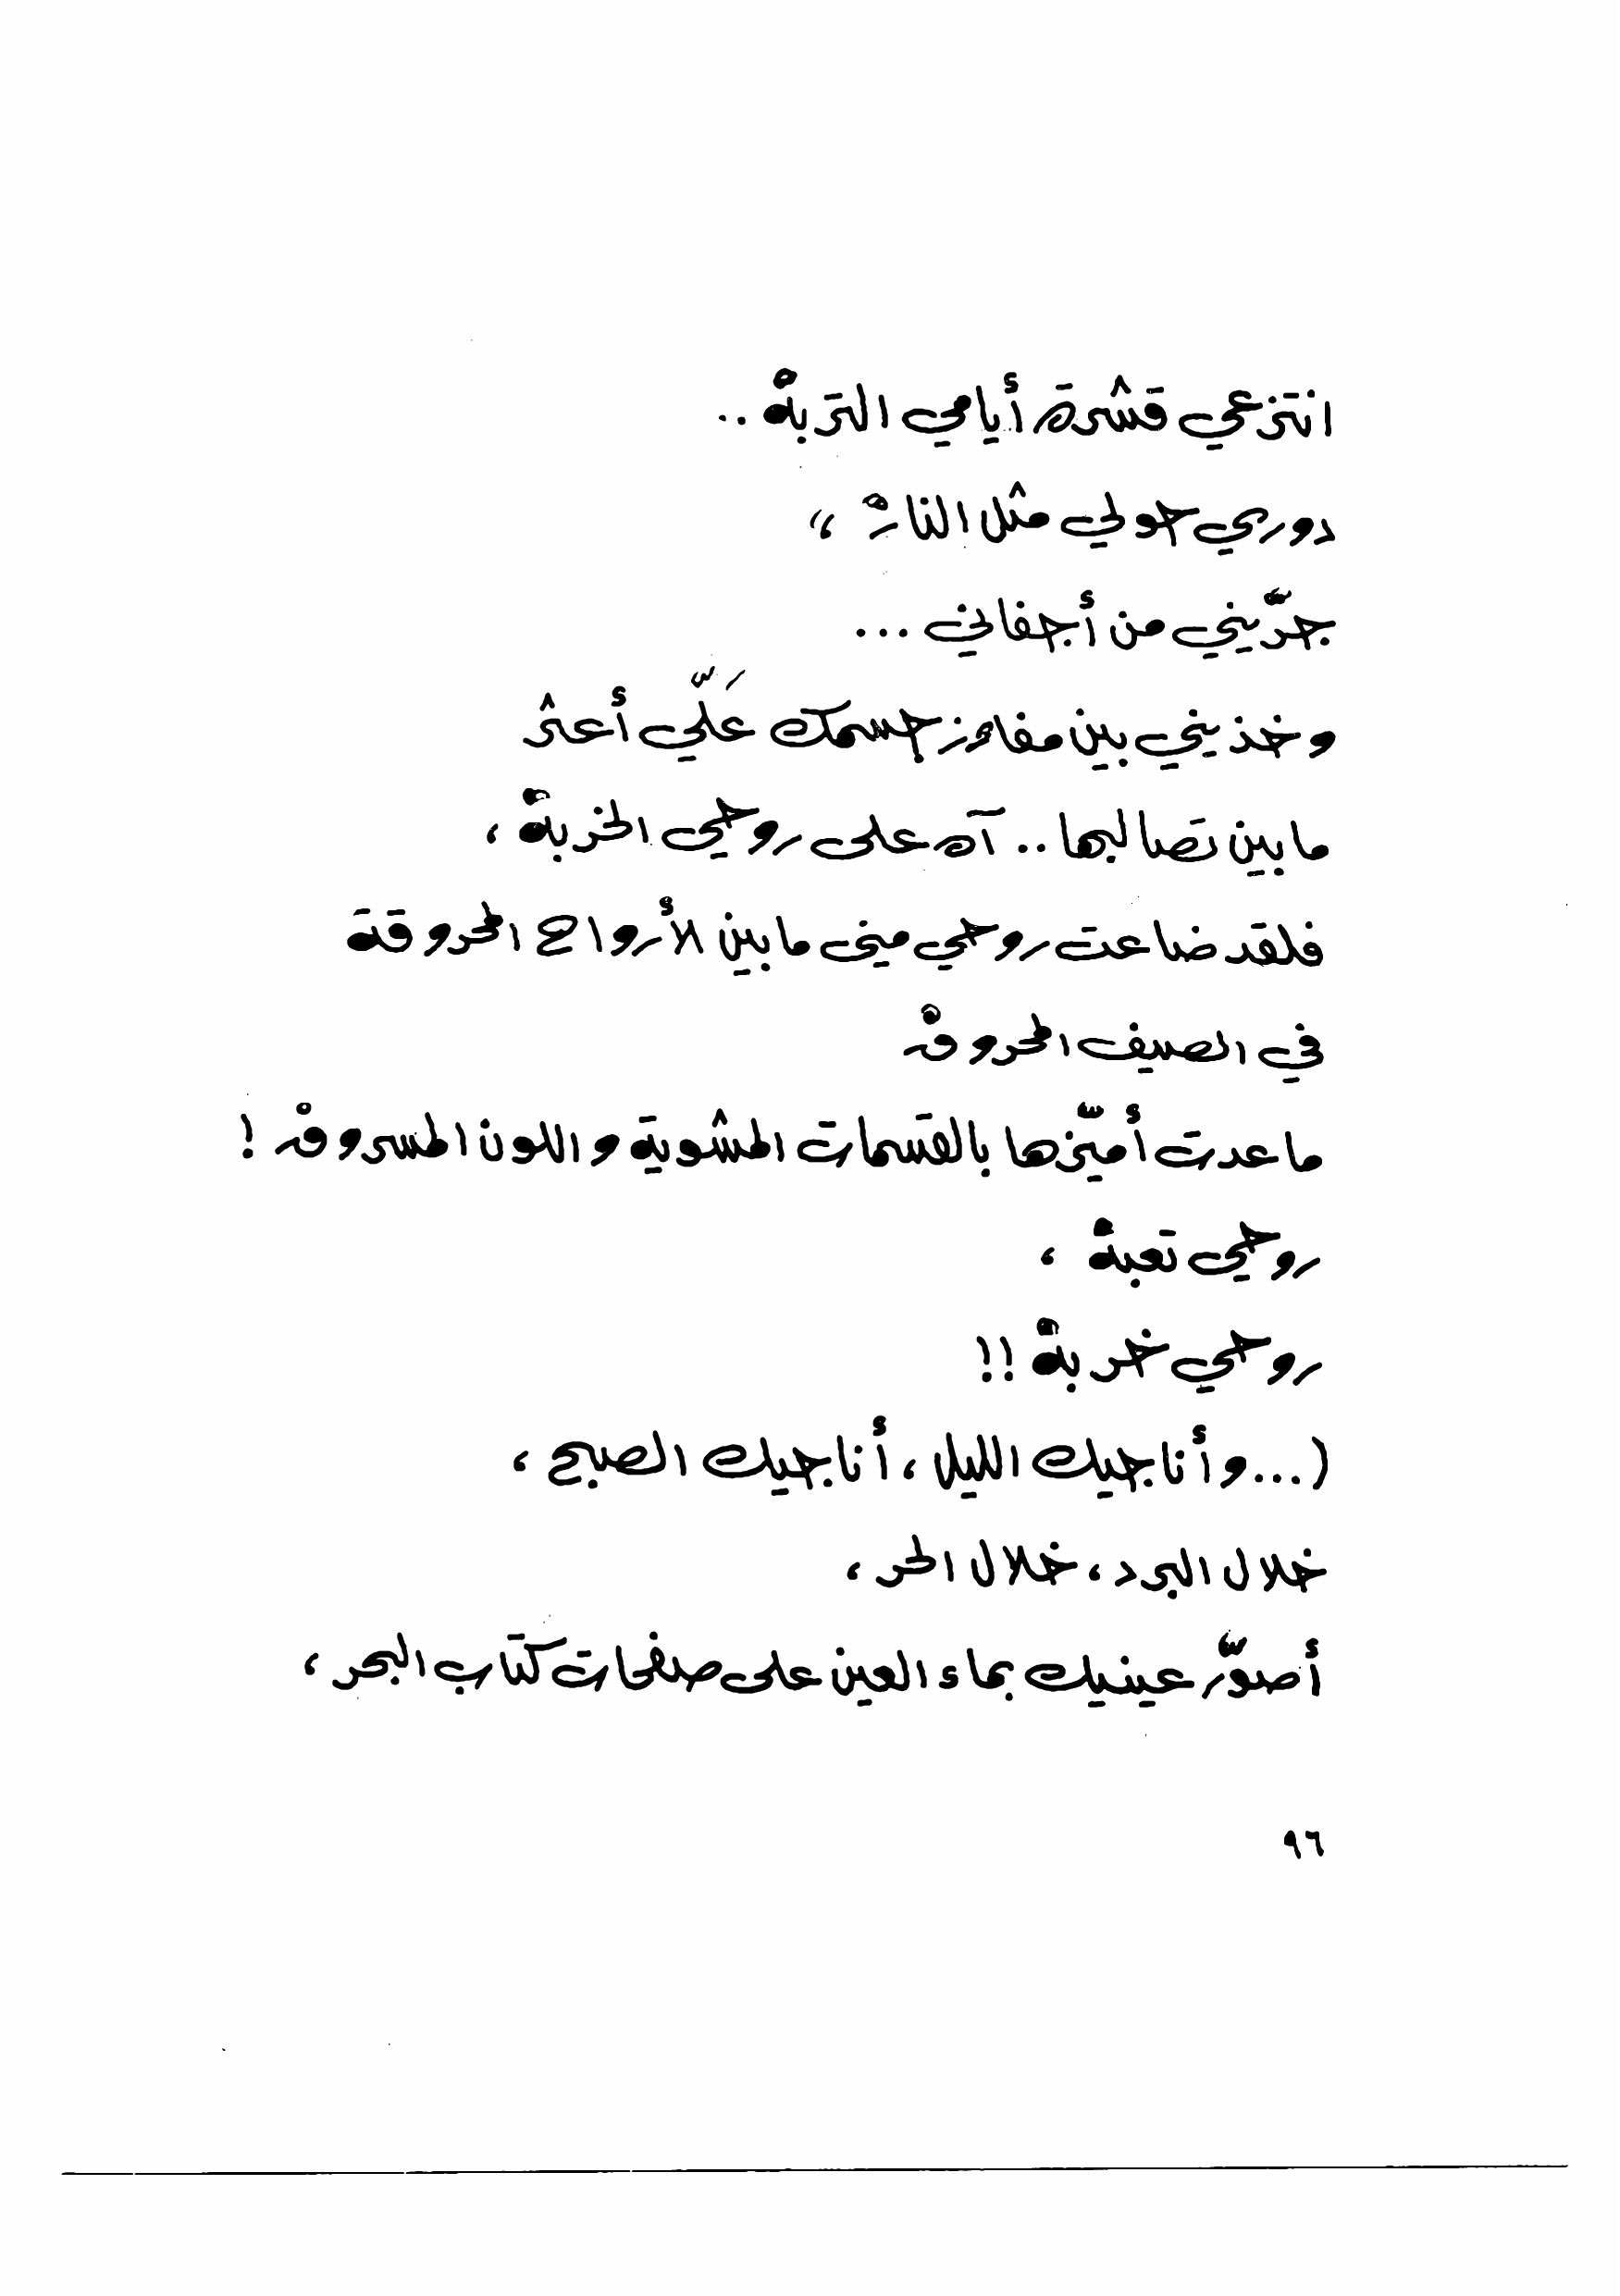 انتزعي قشرة أيامي التربةْ ..
دوري حولي مثل النارْ ،،
جرّيني من أجفاني ...
وخذيني بين مفاوز جسمك عَلّي أعثر
ما بين تصالبها .. آه على روحي الخربةْ ،
فلقد ضاعت روحي مني ما بين الأرواح المحروقة
في الصيف المحروقْ
ما عدت أميّزها بالقسمات المشوية واللون المسروقْ !
روحي تعبةْ ،
روحي خربةْ !!
( ... وأناجيك الليل ، أناجيك الصبح ،
خلال البرد ، خلال الحر ،
أصوّر عينيك بماء العين على صفحات كتاب البحر ،
٩٦